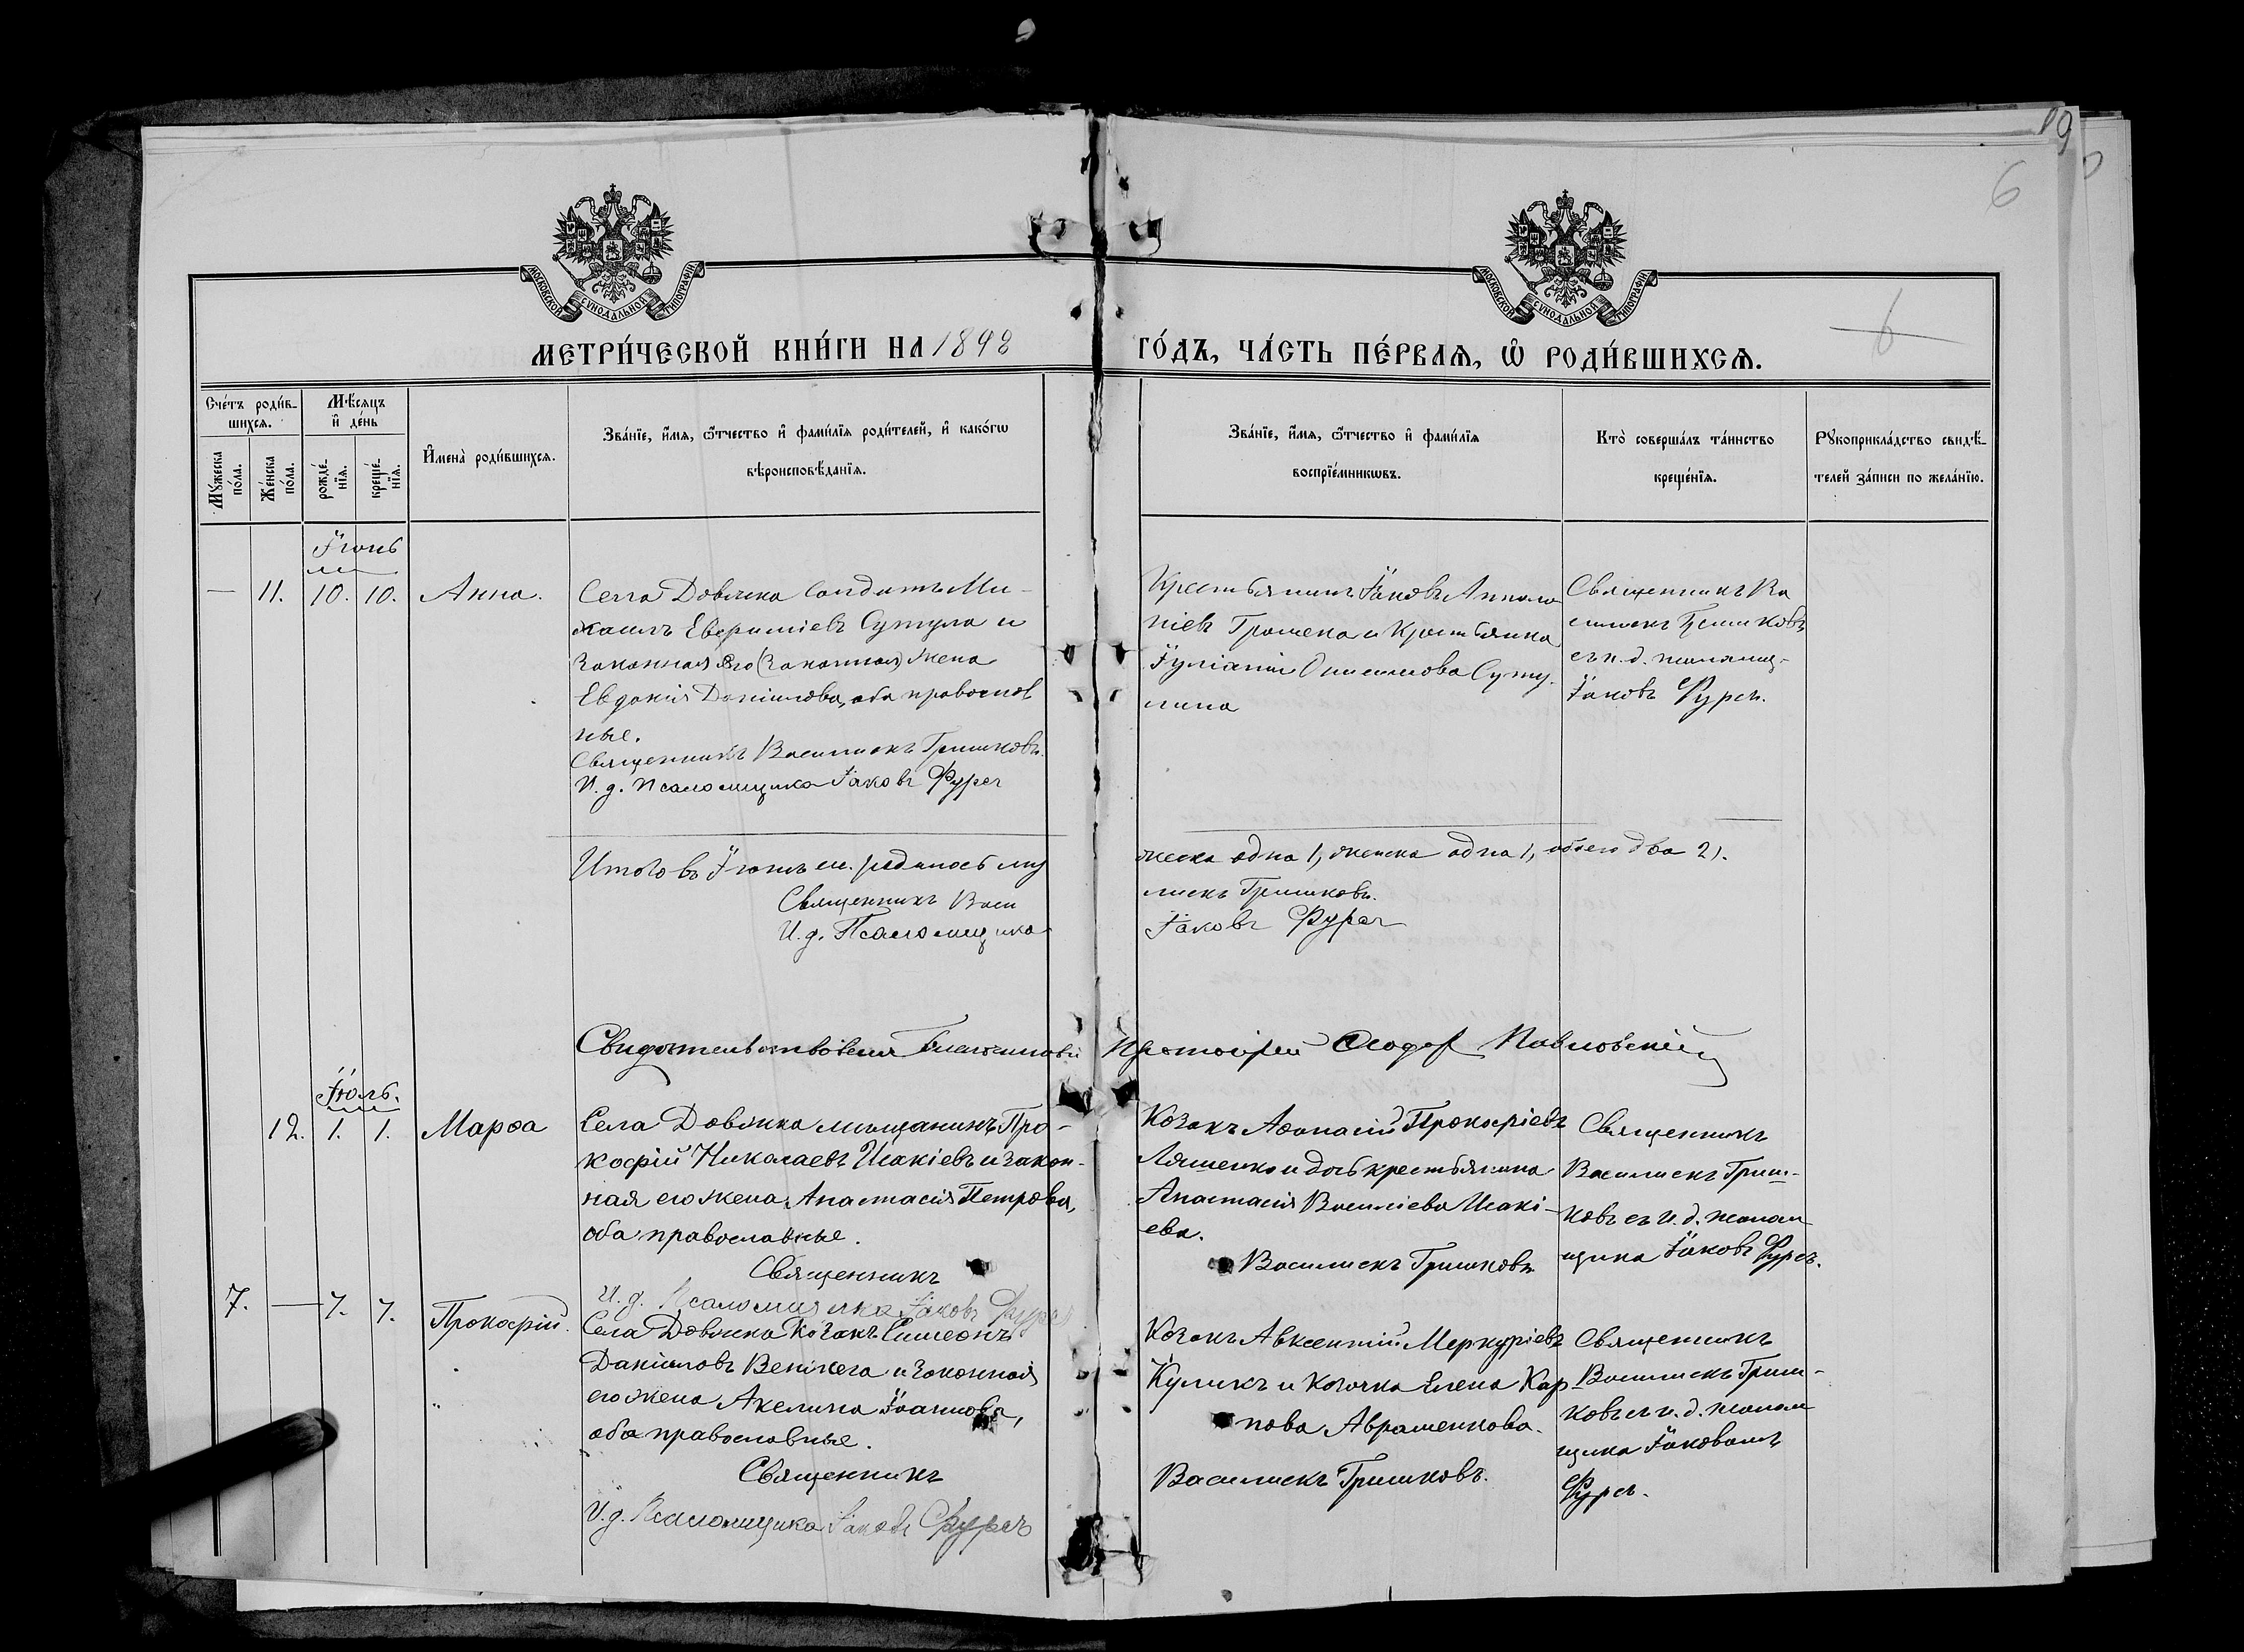 19
6
МОСКОВСКОЙ СѴНОДАЛЬНОЙ ТИПОГРАФІИ
МОСКОВСКОЙ СѴНОДАЛЬНОЙ ТИПОГРАФІИ
6
МЕТРИ́ЧЕСКОЙ КНИ́ГИ НА 1898
ГО́ДЪ, ЧА́СТЬ ПЕ́РВАЯ, Ѡ҆ РОДИ́ВШИХСЯ.
Сче́тъ роди́в-
шихся.
Мѣ́сяцъ
и҆ де́нь
Мꙋ́жеска по́ла.
Же́нска по́ла.
рожде́-
нїя.
креще́-
нїя.
И҆мена̀ роди́вшихся.
Зва́нїе, и҆́мя, ѻ҆́тчество и҆ фамі́лїя роди́телей, и҆ како́гѡ
вѣроисповѣ́данїя.
Зва́нїе, и҆́мя, ѻ҆́тчество и҆ фамі́лїя
воспрїе́мникѡвъ.
Кто̀ соверша́лъ та́инство
креще́нїя.
Рꙋкоприкла́дство свидѣ́-
телей за́писи по жела́нїю.
Іюнь
— 11. 10. 10. Анна.
Села Довжика солдатъ Ми-
хаилъ Евфиміевъ Сутула и
законная его (законная) жена
Евдокія Даніилова, оба правослов
ные.
Священникъ Василискъ Гришковъ.
И. д. Псаломщика Іаковъ Фурсъ
Крестьянинъ Іаковъ Апполо
ніевъ Грошека и Крестьянка
Іуліанія Онисимова Суту-
лина
Священникъ Ва
силискъ Гришковъ
съ и. д. псаломщ-
Іаковъ Фурсъ.
Итого въ Іюнѣ м. родилось му
жеска одна 1, женска одна 1, обоего два 2).
Священникъ Васи
лискъ Гришковъ.
И. д. Псаломщика
Іаковъ Фурсъ
Свидѣтельствовалъ Благочинный
Протоіерей Ѳеодоръ Павловскій
Іюль.
12. 1. 1. Марѳа
Села Довжика мѣщанинъ Про-
кофій Николаевъ Исакіевъ и закон-
ная его жена Анастасія Петрова,
оба православные.
Священникъ
И. д. Псаломщика Іаковъ Фурсъ
Козакъ Аѳанасій Прокофіевъ
Ляшенко и дочь крестьянина
Анастасія Василіева Исакі-
ева.
Василискъ Гришковъ
Священникъ
Василискъ Гриш-
ковъ съ и. д. псалом
щика Іаковъ Фурсъ.
7. — 7. 7. Прокофій.
Села Довжика Козакъ Симеонъ
Даніиловъ Венжега и законная
его жена Акелина Іоаннова,
оба православные.
Священникъ
И. д. Псаломщика Іаковъ Фурсъ
Козакъ Авксентій Меркуріевъ
Куликъ и Козачка Елена Кар-
пова Авраменкова.
Василискъ Гришковъ.
Священникъ
Василискъ Гриш-
ковъ съ и. д. псалом
щика Іаковомъ
Фурсъ.